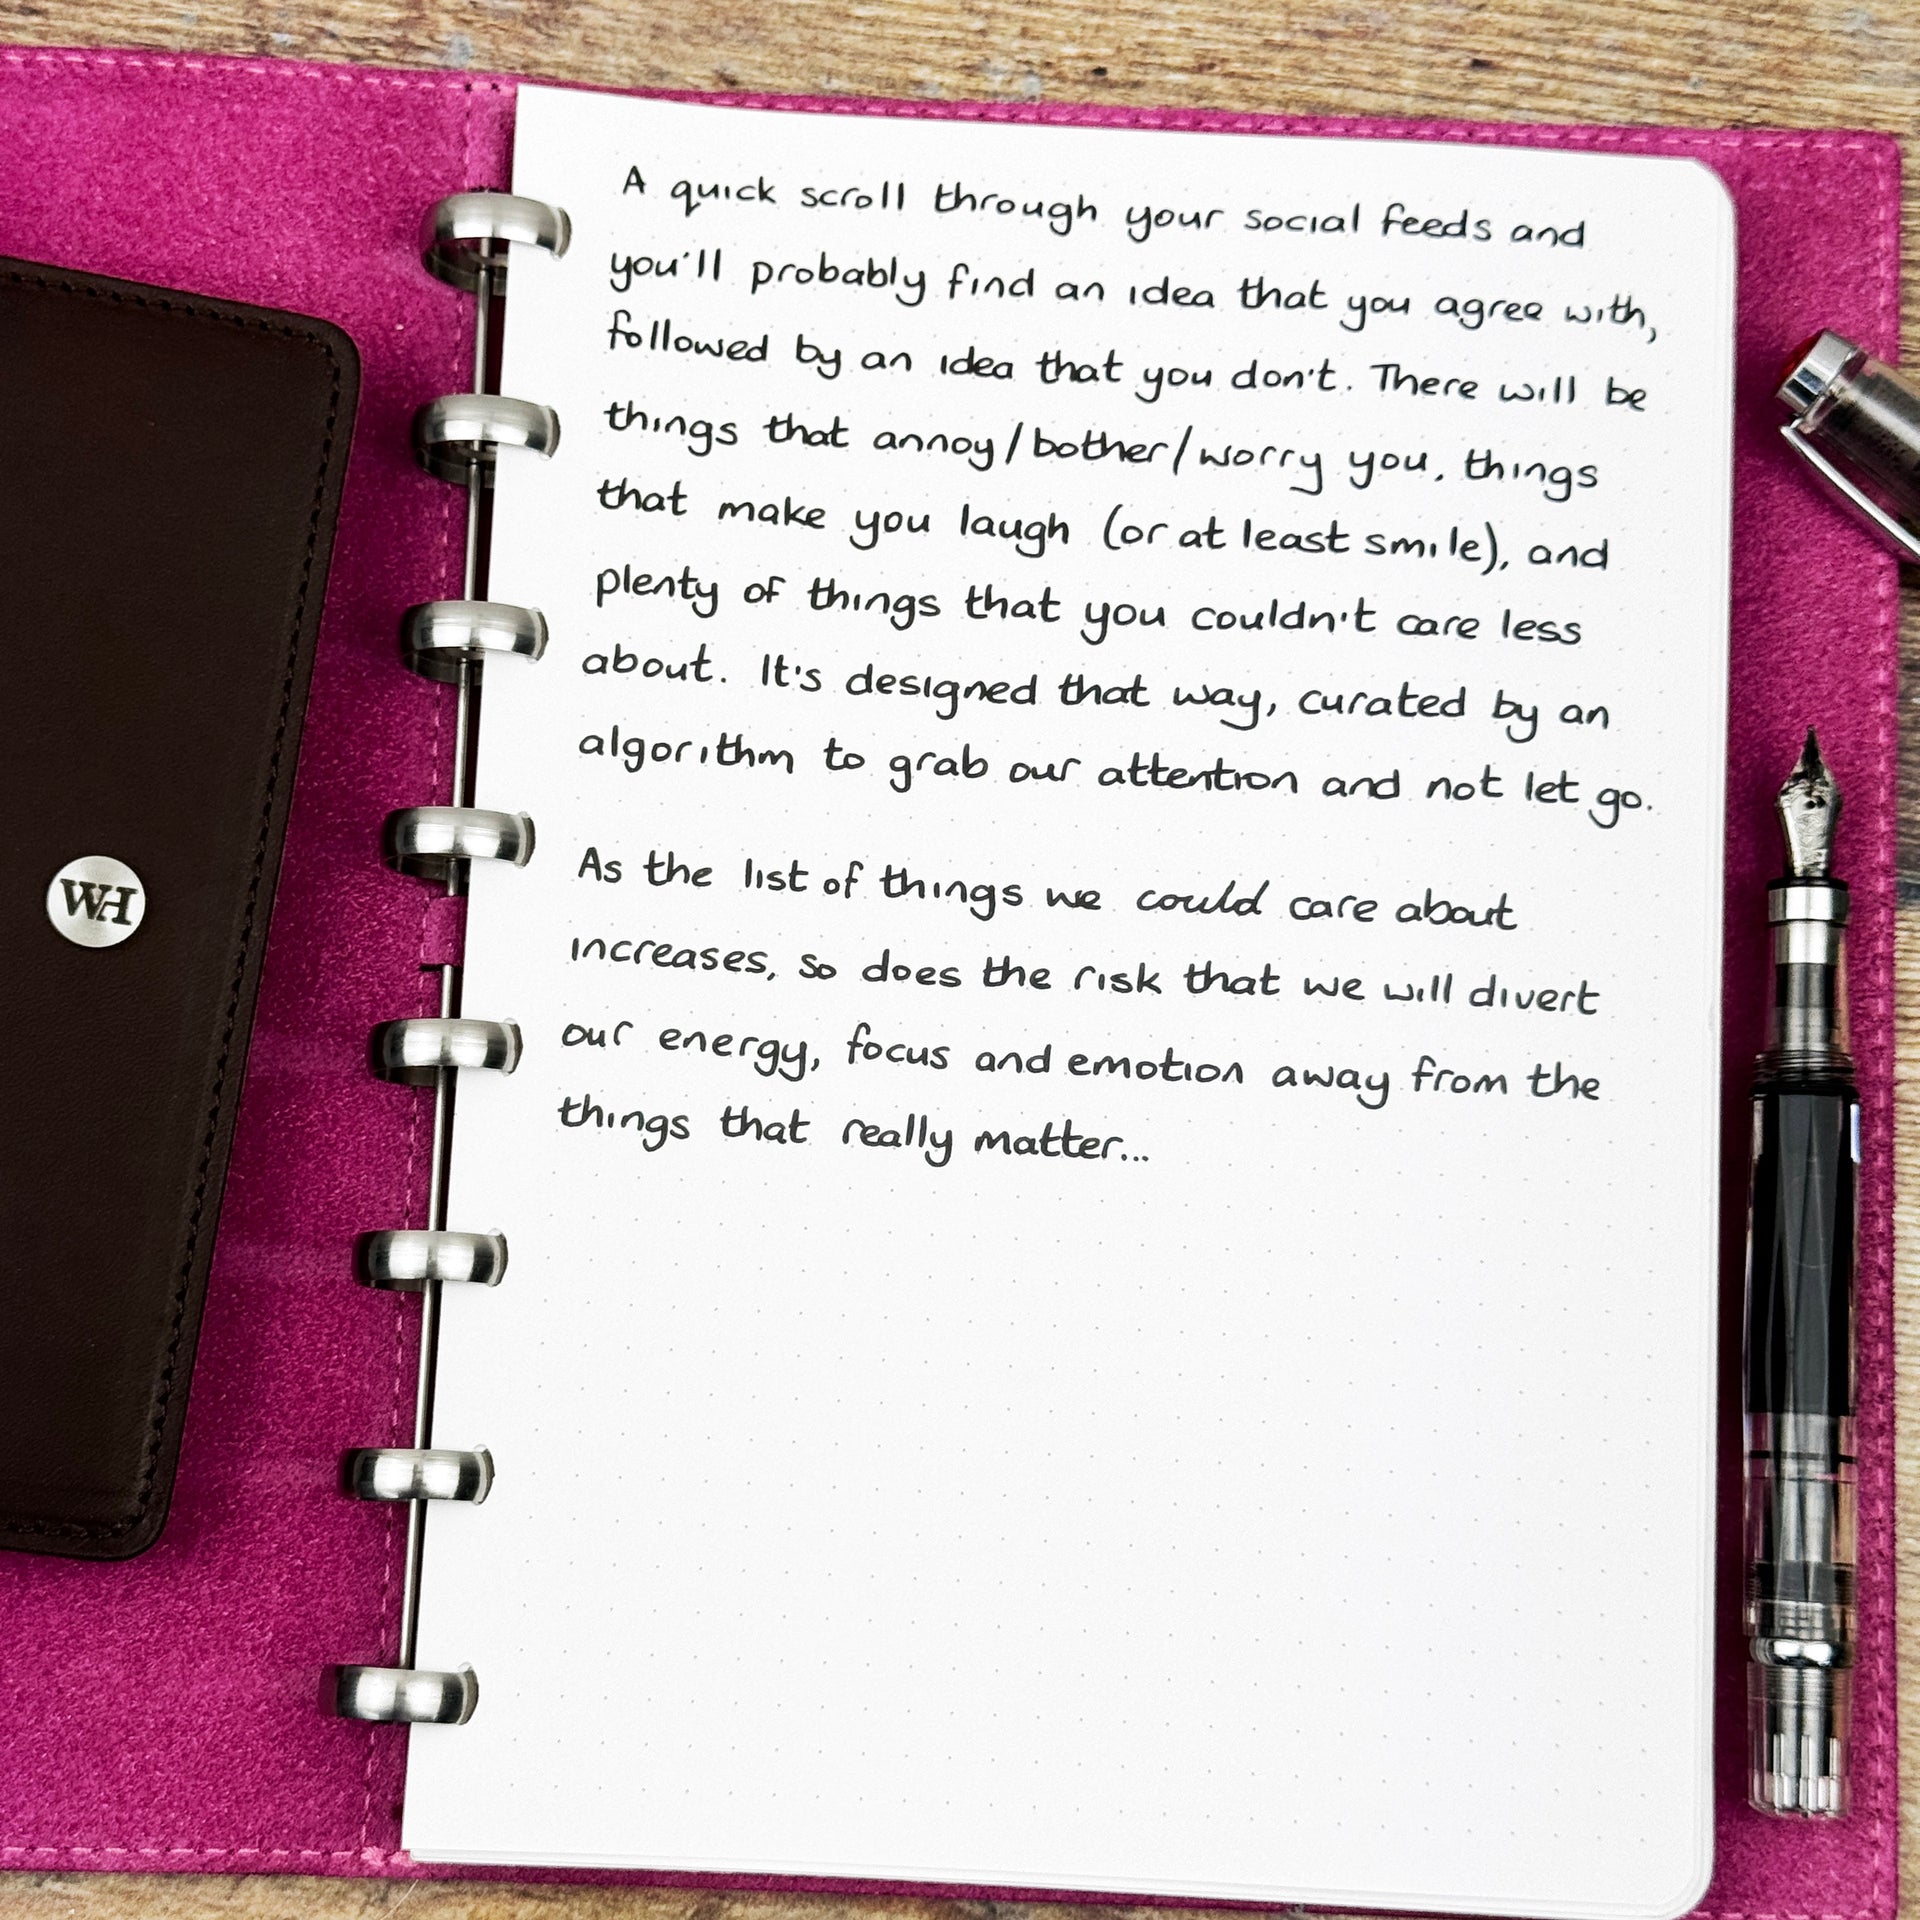 A quick scroll through your social feeds and
you'll probably find an idea that you agree with,
followed by an idea that you don't. There will be
things that annoy/bother/worry you, things
that make you laugh (or at least smile), and
plenty of things that you couldn't care less
about. It's designed that way, curated by an
algorithm to grab our attention and not let go.
As the list of things we could care about
increases, so does the risk that we will divert
our energy, focus and emotion away from the
things that really matter...
WH